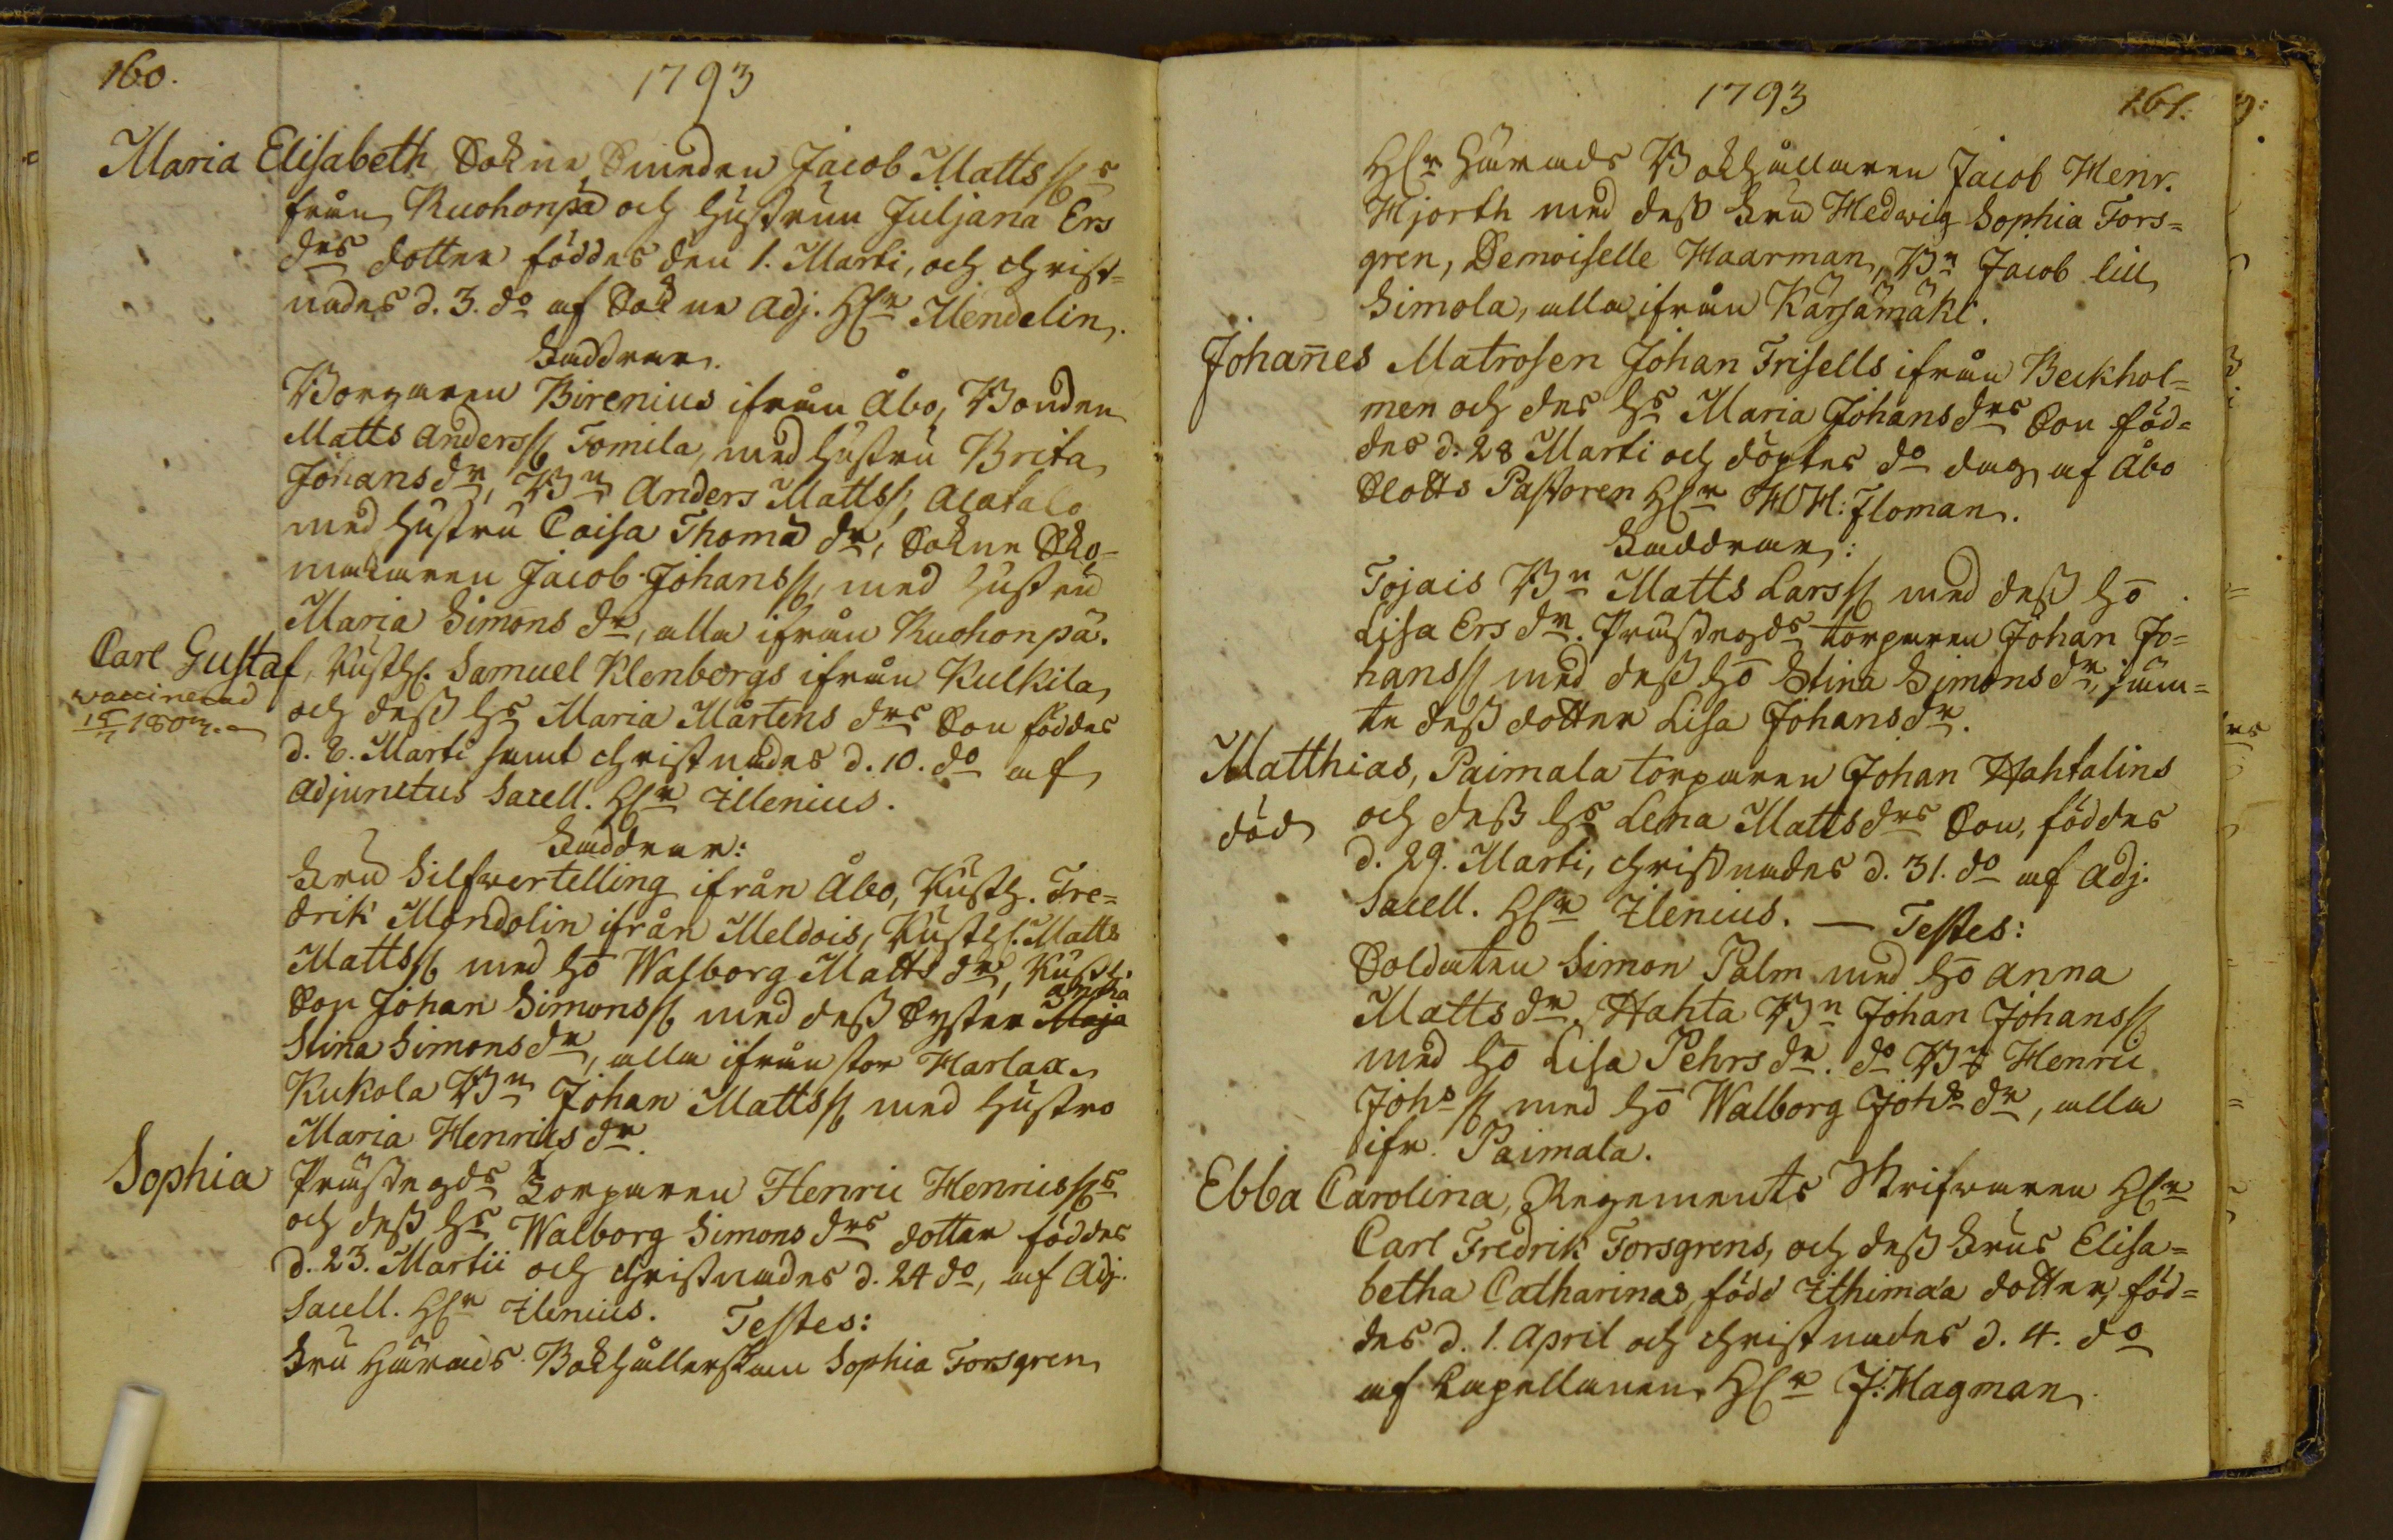 160.
1793
Maria Elisabeth, Sokne Smeden Jacob Mattss:s
från Ruohonpä och hustrun Juljana Ers
drs dotter föddes den 1. Marti, och christ=
nades d. 3. do af Sokne Adj. Hr Mendelin.
Faddrar.
Borgaren Birenius ifrån Åbo, Bonden
Matts Anderss: Tomila, med hustru Brita
Johansdr, Bn Anders Mattss: Alatalo
med hustru Caisa Thomä dr, Sokne Sko=
makaren Jacob Johanss: med hustru
Maria Simons dr, alla ifrån Ruohonpä.
Carl Gustaf, Rusth. Samuel Klenbergs ifrån Kulkila
vaccinerad
och dess hs Maria Mårtens drs Son föddes
d. 8. Marti samt christnades d. 10. do af
Adjunctus Sacell. Hr Ilenius.
Faddrar:
Fru Silfvertelling ifrån Åbo, Rusth. Fre=
drik Mendolin ifrån Meldois, Rusth. Matts
Mattss: med ho Walborg Matts dr, Rusth.
Son Johan Simonss: med dess Syster Maja
Anna
Stina Simons dr, alla ifrån stor Harlax.
Kukola Bn Johan Mattss: med hustro
Maria Henrics dr.
Sophia
Prästegds Torparen Henric Henricss:s
och dess hs Walborg Simons drs dotter föddes
d. 23. Martii och christnades d. 24 do, af Adj.
Sacell. Hr Ilenius. Testes:
Fru Härads Bokhållerskan Sophia Forsgren
1793
161.
Hr Härads Bokhållaren Jacob Henr.
Hjorth med dess Fru Hedwig Sophia Fors=
gren, Demoiselle Haarman, Bn Jacob lill
Simola, alla ifrån Kärsämäki.
Johan̄es Matrosen Johan Frisells ifrån Beckhol=
men och des hs Maria Johans drs Son föd=
des d. 28 Marti och döptes do dag af Åbo
Slotts Pastoren Hr H H: Floman.
Faddrar:
Tojais Bn Matts Larss: med dess ho
Lisa Ers dr. Prästegds torparen Johan Jo=
hanss: med dess ho Stina Simons dr, jäm=
te dess dotter Lisa Johans dr.
Matthias, Paimala torparen Johan Hahtalins
död
och dess hs Lena Matts drs Son, föddes
d. 29. Marti, christnades d. 31. do af Adj.
Sacell. Hr Ilenius. — Testes:
Soldaten Simon Palm med ho Anna
Matts dr. Hahta Bn Johan Johanss:
med ho Lisa Pehrs dr. do Bn Henric
Johs s: med ho Walborg Johs dr, alla
ifr. Paimala.
Ebba Carolina, Regements Skrifvaren Hr
Carl Fredrik Forsgrens, och dess Frus Elisa=
betha Catharinas, född Ithimæa dotter, föd=
des d. 1. April och christnades d. 4. do
af Capellanen Hr J. Hagman.